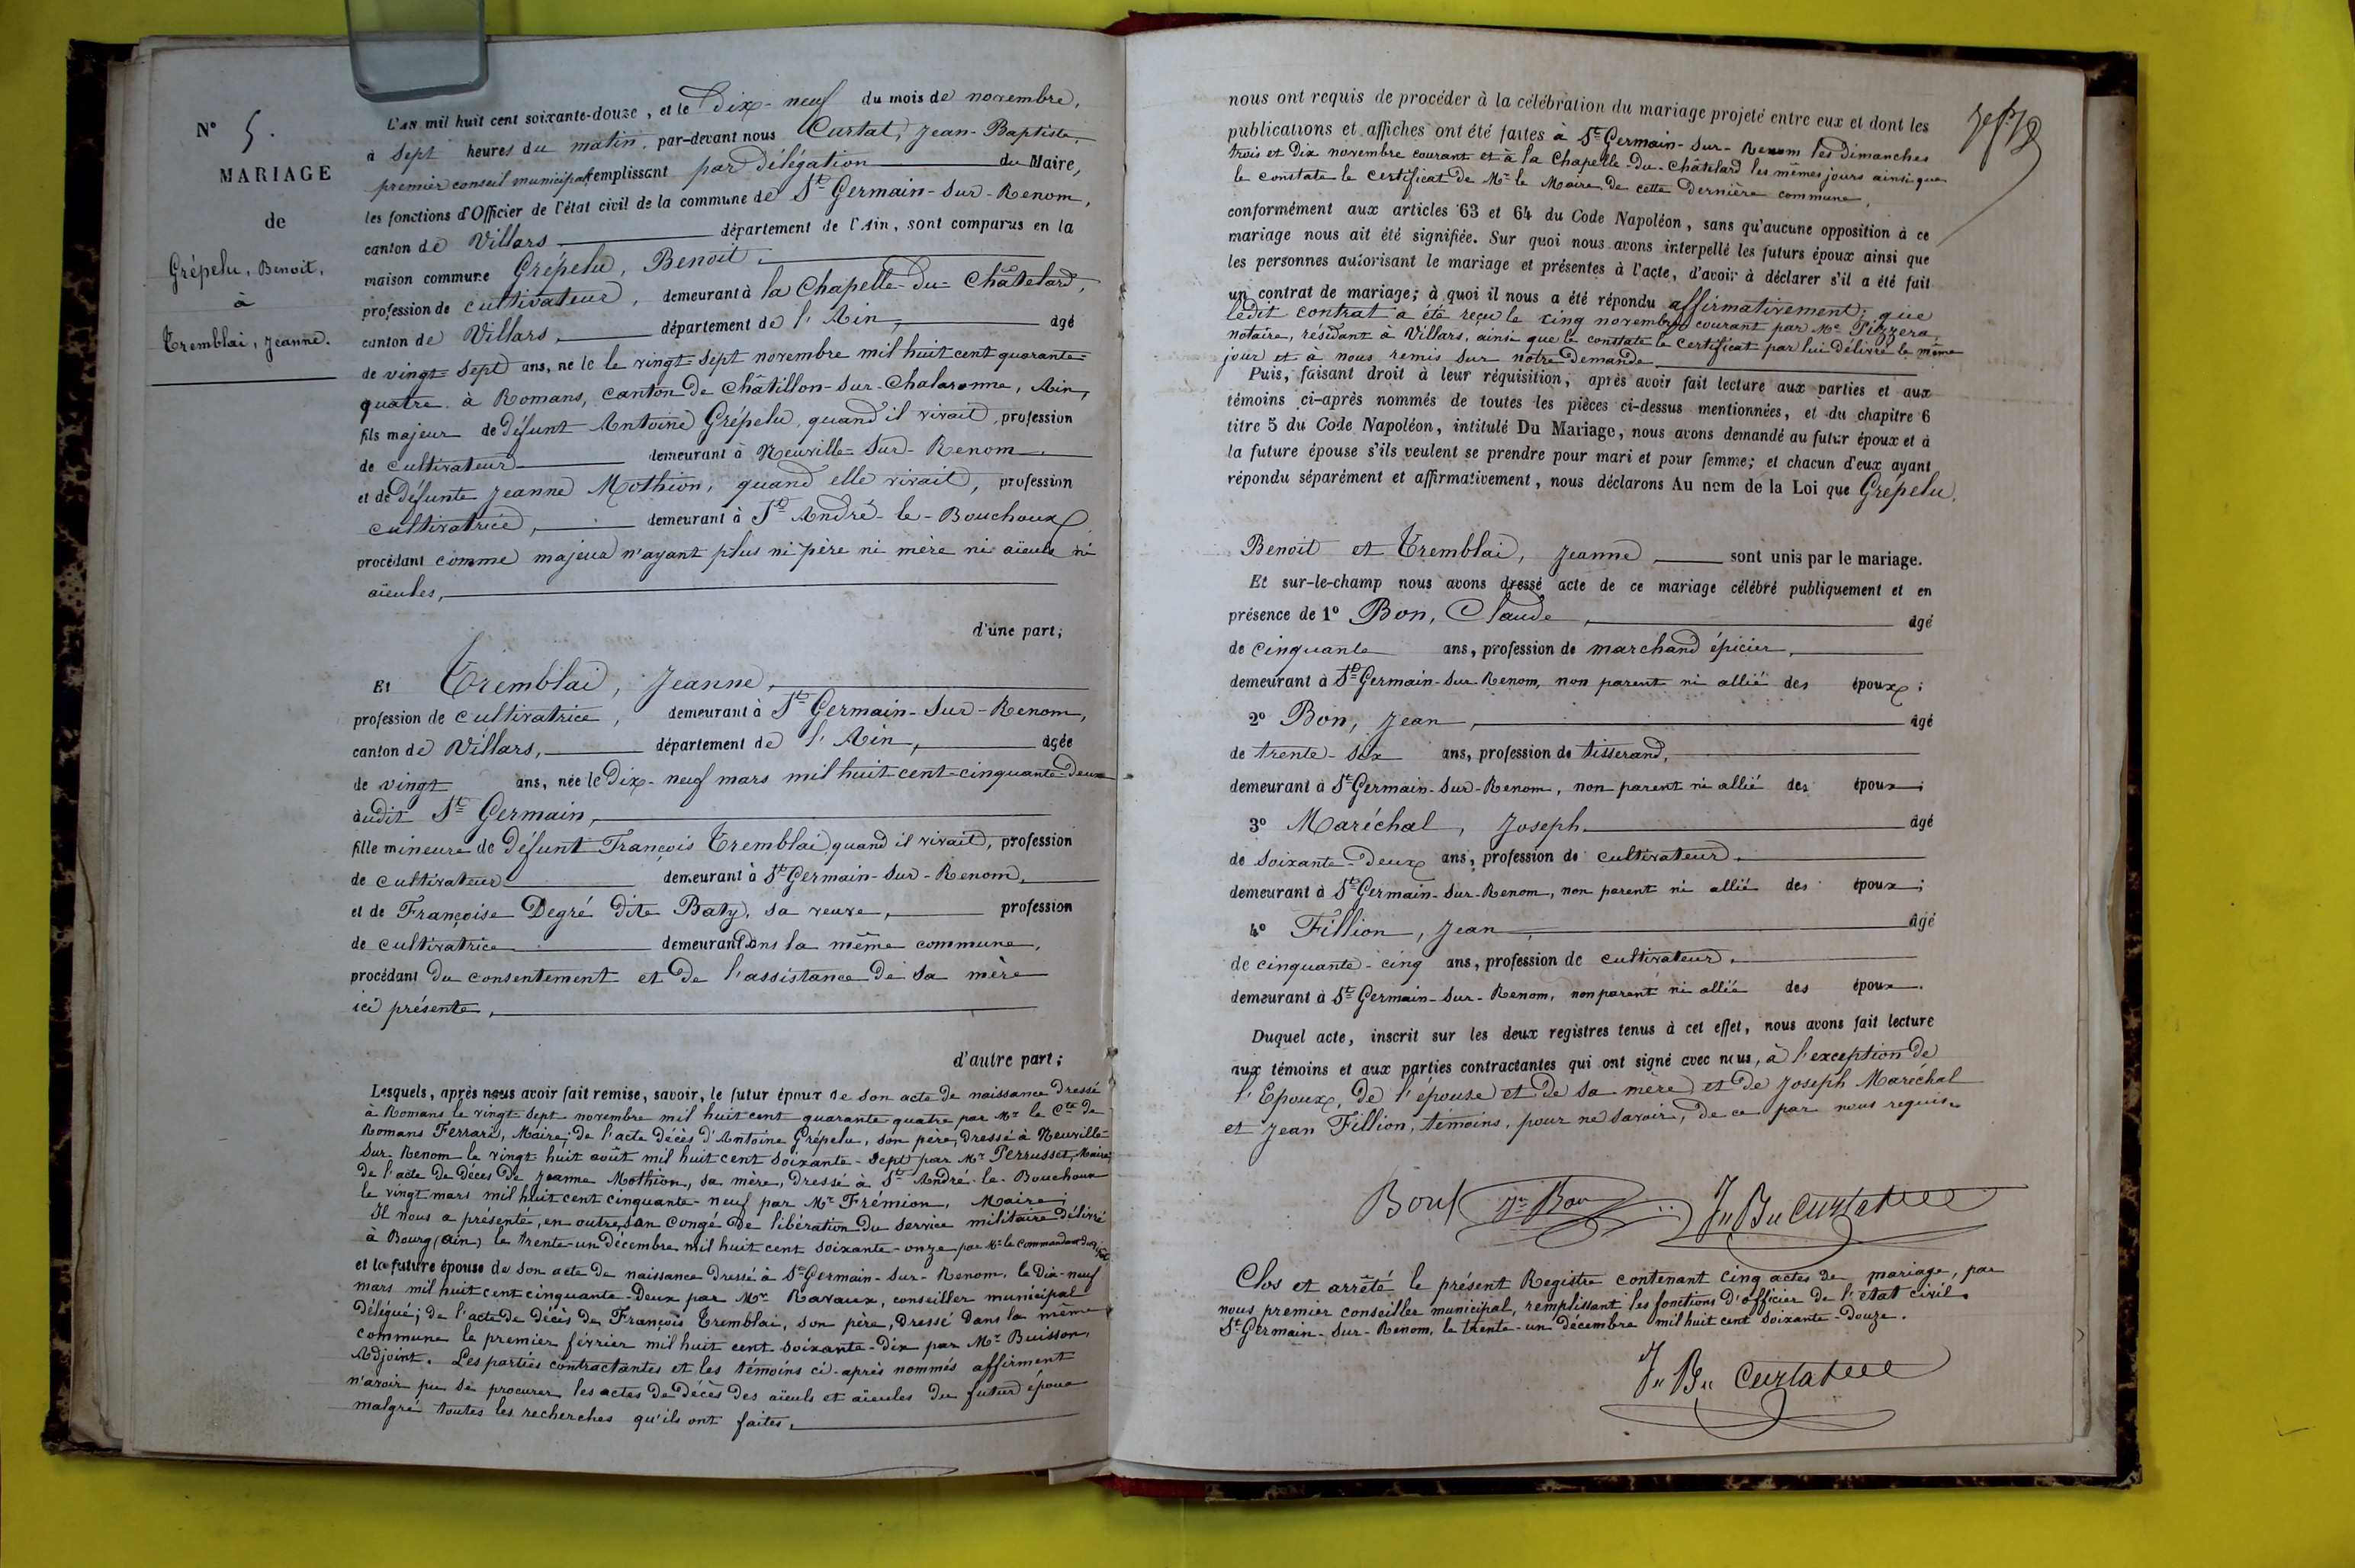 N° 5.
MARIAGE
de
Grépelu, Benoit,
à
Tremblai, Jeanne.
L'AN mil huit cent soixante-douze, et le Dix-neuf du mois de novembre,
à sept heures du matin, par-devant nous Curtat, Jean-Baptiste,
premier conseil municipal remplissant par délégation du Maire,
les fonctions d'Officier de l'état civil de la commune de St Germain-sur-Renom,
canton de Villars département de l'Ain, sont comparus en la
maison commune Grépelu, Benoit,
profession de cultivateur, demeurant à la Chapelle-du-Châtelard,
canton de Villars, département de l'Ain, âgé
de vingt-sept ans, né le le vingt-sept novembre mil huit cent quarante-
quatre à Romans, canton de Châtillon-sur-Chalaronne, Ain,
fils majeur de défunt Antoine Grépelu, quand il vivait, profession
de cultivateur demeurant à Neuville-sur-Renom
et de défunte Jeanne Mothion, quand elle vivait, profession
cultivatrice, demeurant à St André-le-Bouchoux
procédant comme majeur n'ayant plus ni père ni mère ni aïeuls ni
aïeules,
d'une part;
Et Tremblai, Jeanne,
profession de cultivatrice, demeurant à St Germain-sur-Renom,
canton de Villars, département de l'Ain, âgée
de vingt ans, née le Dix-neuf mars mil huit-cent-cinquante-deux
audit St Germain,
fille mineure de défunt François Tremblai, quand il vivait, profession
de cultivateur demeurant à St Germain-sur-Renom,
et de Françoise Degré dite Baty, sa veuve, profession
de cultivatrice demeurant dans la même commune,
procédant du consentement et de l'assistance de sa mère
ici présente,
d'autre part;
Lesquels, après nous avoir fait remise, savoir, le futur époux de son acte de naissance dressé
à Romans le vingt-sept novembre mil huit cent quarante-quatre par Mr le Cte de
Romans Ferrari, Maire; de l'acte décès d'Antoine Grépelu, son père, dressé à Neuville-
sur-Renom le vingt huit août mil huit cent soixante-sept par Mr Perrusset, Maire;
de l'acte de décès de Jeanne Mothion, sa mère, dressé à St André-le-Bouchoux
le vingt mars mil huit cent cinquante-neuf par Mr Frémion, Maire;
Il nous a présenté, en outre, son congé de libération du service militaire délivré
à Bourg (Ain) le trente-un décembre mil huit cent soixante-onze par Mr le Commandant du
et la future épouse de son acte de naissance dressé à St Germain-sur-Renom, le Dix-neuf
mars mil huit cent cinquante-deux par Mr Ravaux, conseiller municipal
délégué; de l'acte de décès de François Tremblai, son père, dressé dans la même
commune le premier février mil huit cent soixante-dix par Mr Buisson,
Adjoint. Les parties contractantes et les témoins ci-après nommés affirment
n'avoir pu se procurer les actes de décès des aïeuls et aïeules du futur époux
malgré toutes les recherches qu'ils ont faites,
nous ont requis de procéder à la célébration du mariage projeté entre eux et dont les
publications et affiches ont été faites à St Germain-sur-Renom les dimanches
trois et Dix novembre courant et à la Chapelle-du-Châtelard les mêmes jours ainsi que
le constate le certificat de Mr le Maire de cette dernière commune,
conformément aux articles 63 et 64 du Code Napoléon, sans qu'aucune opposition à ce
mariage nous ait été signifiée. Sur quoi nous avons interpellé les futurs époux ainsi que
les personnes autorisant le mariage et présentes à l'acte, d'avoir à déclarer s'il a été fait
un contrat de mariage; à quoi il nous a été répondu affirmativement; que
ledit contrat a été reçu le cinq novembre courant par Me Pizzera,
notaire, résidant à Villars, ainsi que le constate le certificat par lui délivré le même
jour et à nous remis sur notre demande
Puis, faisant droit à leur réquisition, après avoir fait lecture aux parties et aux
témoins ci-après nommés de toutes les pièces ci-dessus mentionnées, et du chapitre 6
titre 5 du Code Napoléon, intitulé Du Mariage, nous avons demandé au futur époux et à
la future épouse s'ils veulent se prendre pour mari et pour femme; et chacun d'eux ayant
répondu séparément et affirmativement, nous déclarons Au nom de la Loi que Grépelu,
Benoit et Tremblai, Jeanne, sont unis par le mariage.
Et sur-le-champ nous avons dressé acte de ce mariage célébré publiquement et en
présence de 1° Bon, Claude, âgé
de cinquante ans, profession de marchand épicier,
demeurant à St Germain-sur-Renom, non parent ni allié des époux;
2° Bon, Jean, âgé
de trente-six ans, profession de tisserand,
demeurant à St Germain-sur-Renom, non parent ni allié des époux;
3° Maréchal, Joseph âgé
de soixante-deux ans, profession de cultivateur,
demeurant à St Germain-sur-Renom, non parent ni allié des époux;
4° Fillion, Jean, âgé
de cinquante-cinq ans, profession de cultivateur,
demeurant à St Germain-sur-Renom, non parent ni allié des époux.
Duquel acte, inscrit sur les deux registres tenus à cet effet, nous avons fait lecture
aux témoins et aux parties contractantes qui ont signé avec nous, à l'exception de
l'Epoux, de l'épouse et de sa mère et de Joseph Maréchal
et Jean Fillion, témoins, pour ne savoir, de ce par nous requis.
Bon Jn Bon Jn Bte Curtat
Clos et arrêté le présent Registre contenant cinq actes de mariage, par
nous premier conseiller municipal, remplissant les fonctions d'officier de l'état civil.
St Germain-sur-Renom, le trente-un décembre mil huit cent soixante-douze.
Jn Bte Curtat